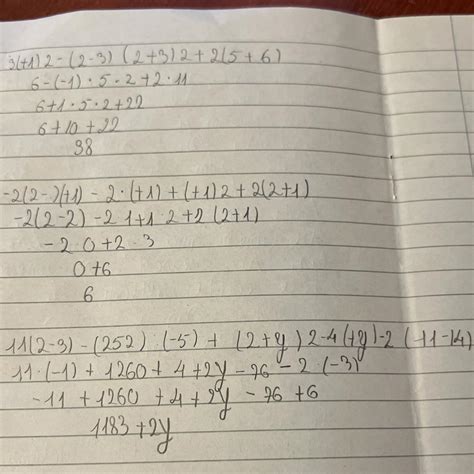 3(+1)2-(2-3)(2+3)2+2(5+6)
6-(-1)·5·2+2·11
6+1·5·2+22
6+10+22
38
-2(2-2)(+1)-2·(+1)+(+1)2+2(2+1)
-2(2-2)-2 1+1·2+2(2+1)
-2·0+2·3
0+6
6
11(2-3)-(252)·(-5)+(2+y)2-4(+y)-2(11-14)
11·(-1)+1260+4+2y-76-2·(-3)
-11+1260+4+2y-76+6
1183+2y